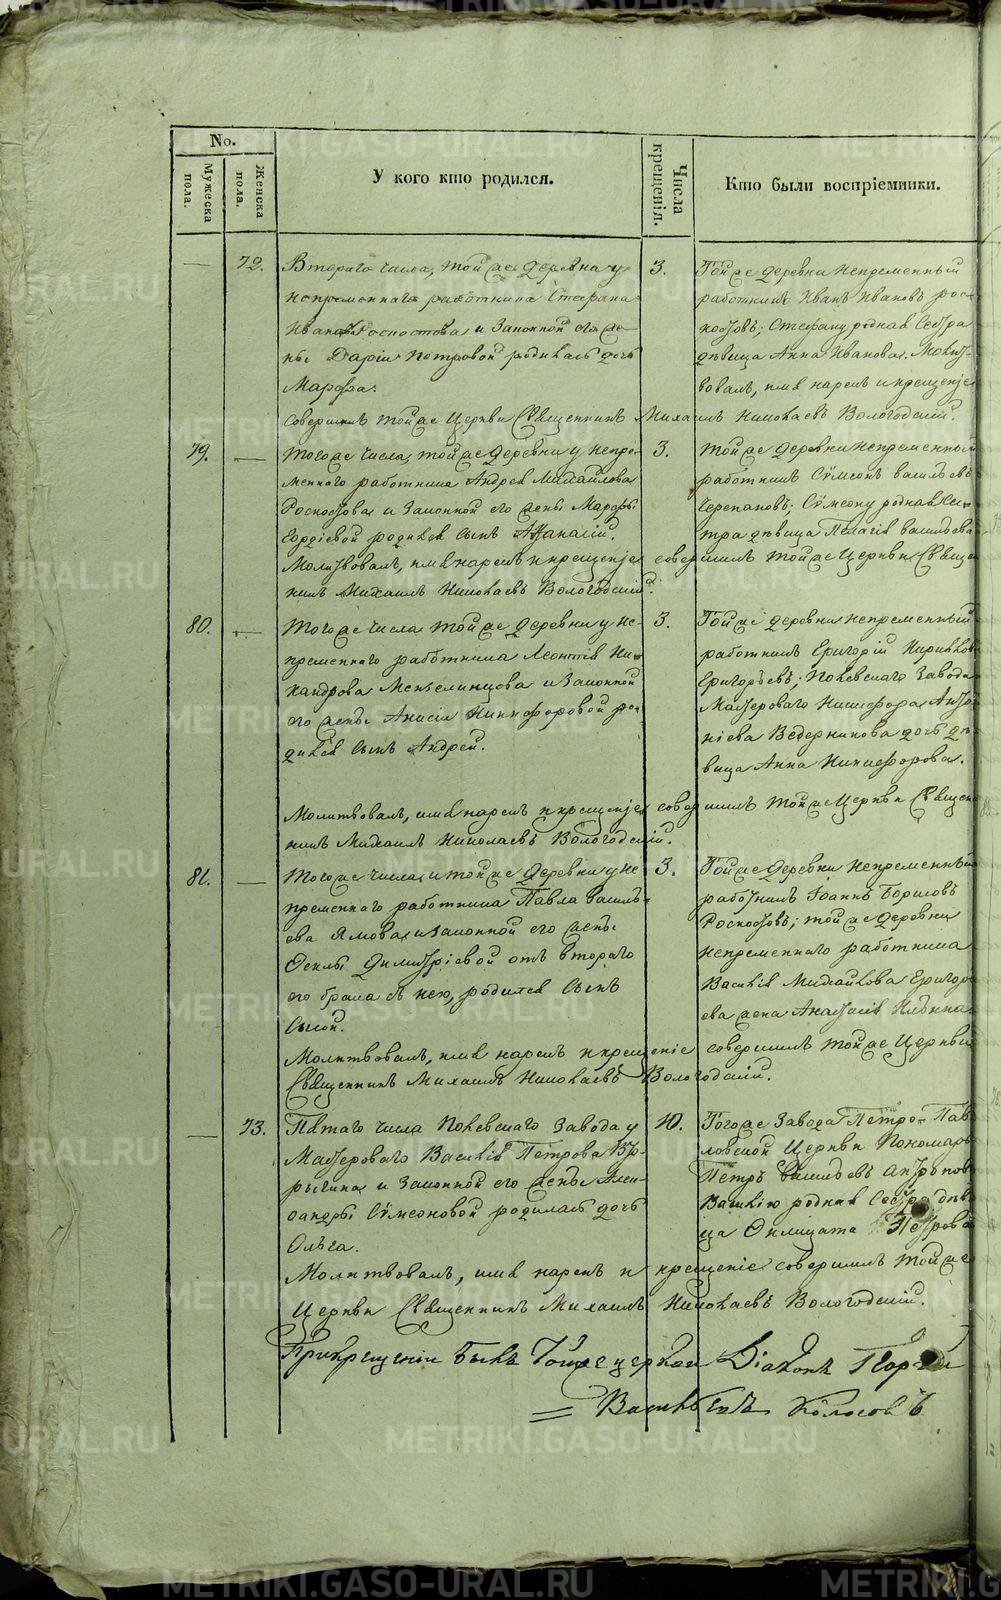 No.
Мужеска пола.
Женска пола.
У кого кто родился.
Числа крещенія.
Кто были воспріемники.
72.
Втораго числа, той же деревни у
непременнаго работника Стефана
Иванова Роспостова и Законной его же-
ны Дарьи Петровой родилась дочь
Марфа.
3.
Той же деревни непременный
работникъ Иванъ Ивановъ
Стефану родная Сестра
девица Анна Иванова. Молит-
вовалъ, имя нарекъ и крещеніе
совершилъ той же Церкви Священникъ Михаилъ Николаевъ Вологодскій.
79.
Того же числа, той же деревни у непре-
меннаго работника Андрея Михайлова
и Законной его жены Марфы
Гордіевой родился сынъ Афанасій.
3.
Той же деревни непременный
работникъ Сѵмеонъ Васильевъ
Черепановъ; Сѵмеону родная Се-
тра девица Пелагія Васильева
Молитвовалъ, имя нарекъ и крещеніе совершилъ той же Церкви Священ
никъ Михаилъ Николаевъ Вологодскій.
80.
Того же числа той же деревни у не-
пременнаго работника Леонтія Ни-
кандрова Мензелинцова и Законной
его жены Анисіи Никифоровой ро-
дился сынъ Андрей.
3.
Той же деревни непременный
работникъ Григорій Кириловъ
Григорьевъ; Пожевскаго Завода
Мастероваго Никифора Анто-
ніева Ведерникова дочь де-
вица Анна Никифорова.
Молитвовалъ, имя нарекъ и крещеніе совершилъ той же Церкви Священ
никъ Михаилъ Николаевъ Вологодскій.
81.
Того же числа, и той же деревни у не
пременнаго работника Павла Василь-
ева и Законной его жены
Феклы Димитріевой отъ втораго
его брака съ нею, родился сынъ
Сысой.
3.
Той же деревни непременный
работникъ Іоаннъ Борисовъ
той же деревни
непременнаго работника
Василія Михайлова Григорь
ева жена Анастасія
Молитвовалъ, имя нарекъ и крещеніе совершилъ той же Церкви
Священникъ Михаилъ Николаевъ Вологодскій.
73.
Пятаго числа Пожевскаго Завода у
Мастероваго Василія Петрова
и Законной его жены Алек-
сандры Сѵмеоновой родилась дочь
Ольга.
10.
Того же Завода Петро-Пав
ловской Церкви Пономарь
Петръ Васильевъ Антропов
Василію родная Сестра деви
ца Олимпіада Петрова
Молитвовалъ, имя нарекъ и крещеніе совершилъ той же
Церкви Священникъ Михаилъ Николаевъ Вологодскій.
При Крещеніи былъ тойже церкви Діаконъ Георгій
Васильевъ Колосовъ
METRIKI.GASO-URAL.RU